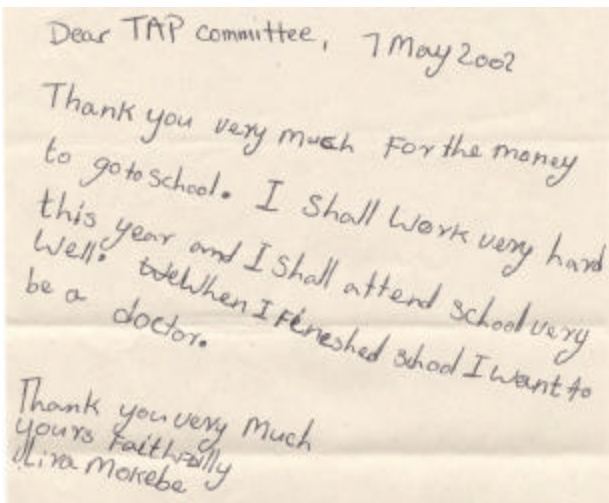 Dear TAP committee, 7 May 2002
Thank you very much For the money
to go to School. I Shall Work very hard
this year and I Shall attend school very
Well. When I Fineshed school I want to
be a doctor.
Thank you very Much
yours Faithfully
Mokebe